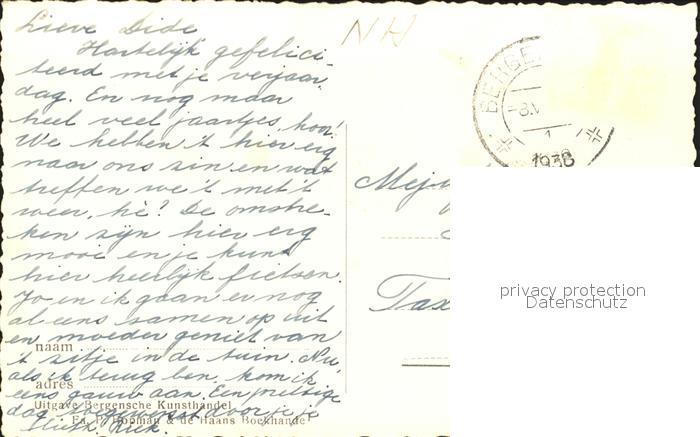 Lieve Dide
Hartelijk gefelici-
teerd met je verjaar-
dag. En nog maar
heel veel jaartjes hoor!
We hebben 't hier erg
naar ons zin en wat
treffen we 't met 't
weer, hè? De omstre-
ken zijn hier erg
mooi en je kunt
hier heerlijk fietsen.
Jo en ik gaan er nog
al eens samen op uit
en moeder geniet van
't zitje in de tuin. Nu
als ik terug ben, kom ik
eens gauw aan. Een prettige
dag toegewenst door je je
Riek.
naam
adres
Uitgave Bergensche Kunsthandel
Fa. P. Mooman & de Haans Boekhandel
NH
BERGE
-8.V
1
1938
Mej
Tax
privacy protection
Datenschutz